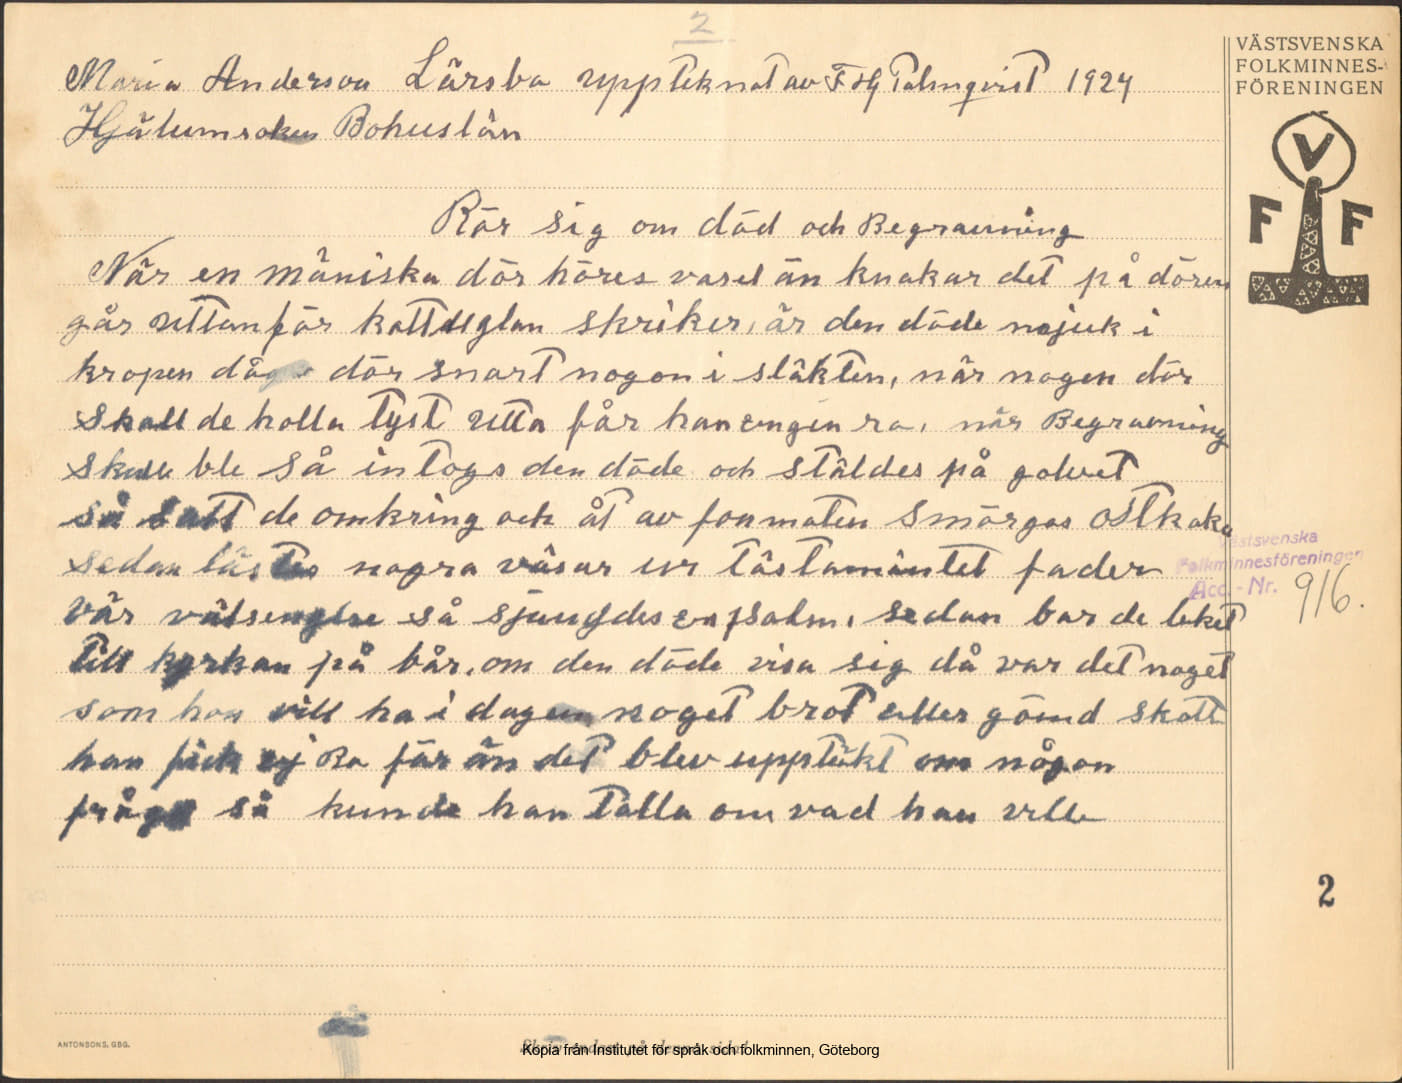 2
Maria Anderson Lärsbo uppteknat av F Hj Palmqvist 1924
Hjälumsoken Bohuslän
VÄSTSVENSKA
FOLKMINNES-
FÖRENINGEN
V
F F
Rör sig om död och Begravning
När en mäniska dör höres varsel än knakar det på dören
går uttanför kattuglan skriker, är den döde mjuk i
kropen dör snart nogon i släkten, når nogen dör
skall de holla tyst utta får han engen ro, når Begravning
skulle ble så intogs den döde och stäldes på golvet
så satt de omkring och åt av fonmaten smörgos ostkaka
sedan lästes nogra väsar ur tästamäntet fader
vår välsengelse så sjungdes en psalm, sedan bar de leket
till kyrkan på bår, om den döde visa sig då var det noget
som han vill ha i dagen noget brot eller gömd skatt
han fick ej Ro för än det blev upptäkt om någon
fråga så kunde han talla om vad han ville
Västsvenska
Folkminnesföreningen
Acc.-Nr. 916.
2
ANTONSONS, GBG.
Kopia från Institutet för språk och folkminnen, Göteborg